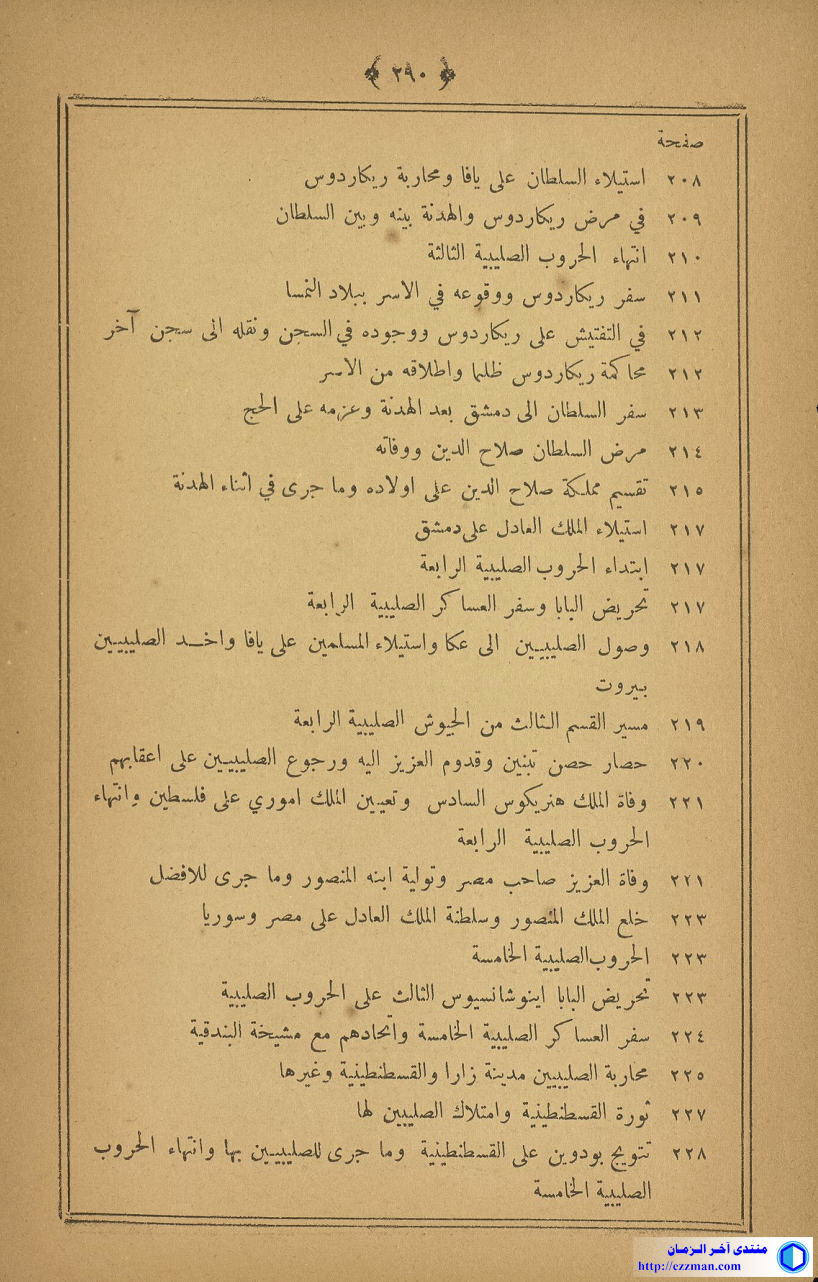 ﴿ ٢٩٠ ﴾
صفحة
٢٠٨ استيلاء السلطان على يافا ومحاربة ريكاردوس
٢٠٩ في مرض ريكاردوس والهدنة بينه وبين السلطان
٢١٠ انتهاء الحروب الصليبية الثالثة
٢١١ سفر ريكاردوس ووقوعه في الاسر ببلاد النمسا
٢١٢ في التفتيش على ريكاردوس ووجوده في السجن ونقله الى سجن آخر
٢١٢ محاكمة ريكاردوس ظلما واطلاقه من الاسر
٢١٣ سفر السلطان الى دمشق بعد الهدنة وعزمه على الحج
٢١٤ مرض السلطان صلاح الدين ووفاته
٢١٥ تقسيم مملكة صلاح الدين على اولاده وما جرى في اثناء الهدنة
٢١٧ استيلاء الملك العادل على دمشق
٢١٧ ابتداء الحروب الصليبية الرابعة
٢١٧ تحريض البابا وسفر العساكر الصليبية الرابعة
٢١٨ وصول الصليبيين الى عكا واستيلاء المسلمين على يافا واخد الصليبيين
بيروت
٢١٩ مسير القسم الثالث من الجيوش الصليبية الرابعة
٢٢٠ حصار حصن تبنين وقدوم العزيز اليه ورجوع الصليبيين على اعقابهم
٢٢١ وفاة الملك هنريكوس السادس وتعيين الملك اموري على فلسطين وانتهاء
الحروب الصليبية الرابعة
٢٢١ وفاة العزيز صاحب مصر وتولية ابنه المنصور وما جرى للافضل
٢٢٣ خلع الملك المنصور وسلطنة الملك العادل على مصر وسوريا
٢٢٣ الحروب الصليبية الخامسة
٢٢٣ تحريض البابا اينوشانسيوس الثالث على الحروب الصليبية
٢٢٤ سفر العساكر الصليبية الخامسة واتحادهم مع مشيخة البندقية
٢٢٥ محاربة الصليبيين مدينة زارا والقسطنطينية وغيرها
٢٢٧ ثورة القسطنطينية وامتلاك الصليبين لها
٢٢٨ تتويج بودوين على القسطنطينية وما جرى للصليبيين بها وانتهاء الحروب
الصليبية الخامسة
منتدى آخر الزمان
http://ezzman.com